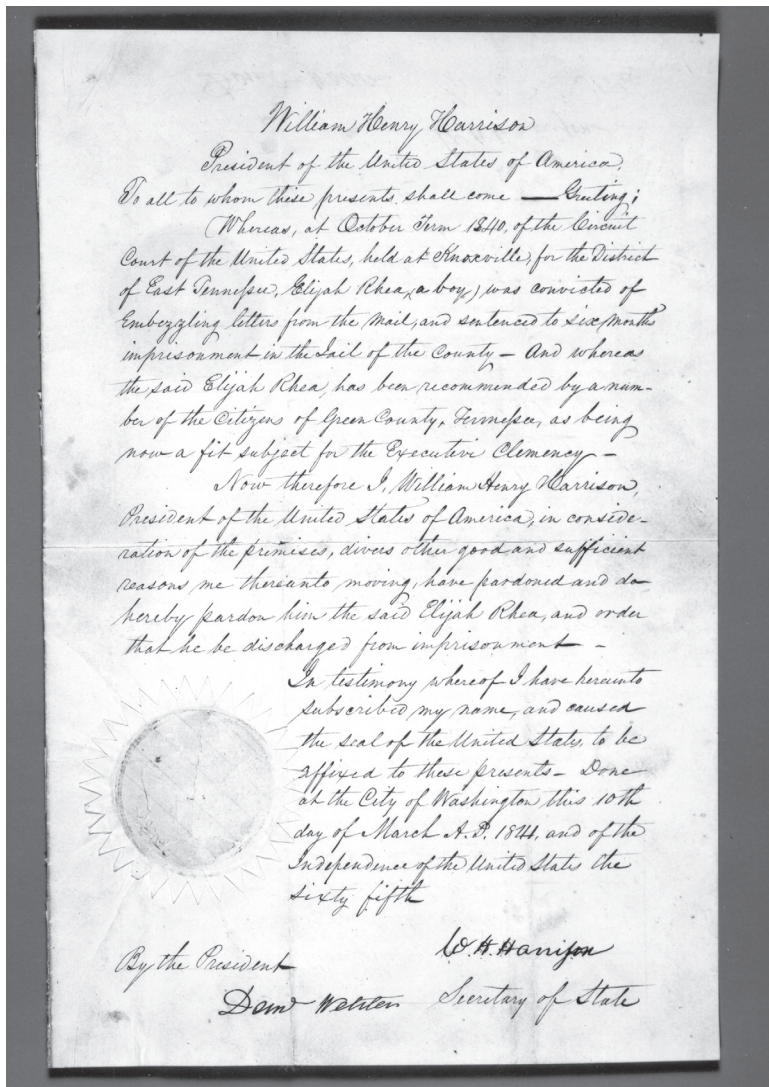 William Henry Harrison
President of the United States of America,
To all to whom these presents shall come — Greeting;
Whereas, at October Term 1840, of the Circuit
Court of the United States, held at Knoxville, for the District
of East Tennessee, Elijah Rhea, (a boy) was convicted of
Embezzling letters from the Mail, and sentenced to six months
imprisonment in the Jail of the County — And whereas
the said Elijah Rhea, has been recommended by a num-
ber of the Citizens of Green County, Tennessee, as being
now a fit subject for the Executive Clemency —
Now therefore I, William Henry Harrison,
President of the United States of America, in conside-
ration of the premises, divers other good and sufficient
reasons me thereunto moving, have pardoned and do
hereby pardon him the said Elijah Rhea, and order
that he be discharged from imprisonment —
In testimony whereof I have hereunto
subscribed my name, and caused
the seal of the United States, to be
affixed to these presents — Done
at the City of Washington this 10th
day of March A.D. 1841, and of the
Independence of the United States the
sixty fifth
W. H. Harrison
By the President
Danl Webster Secretary of State